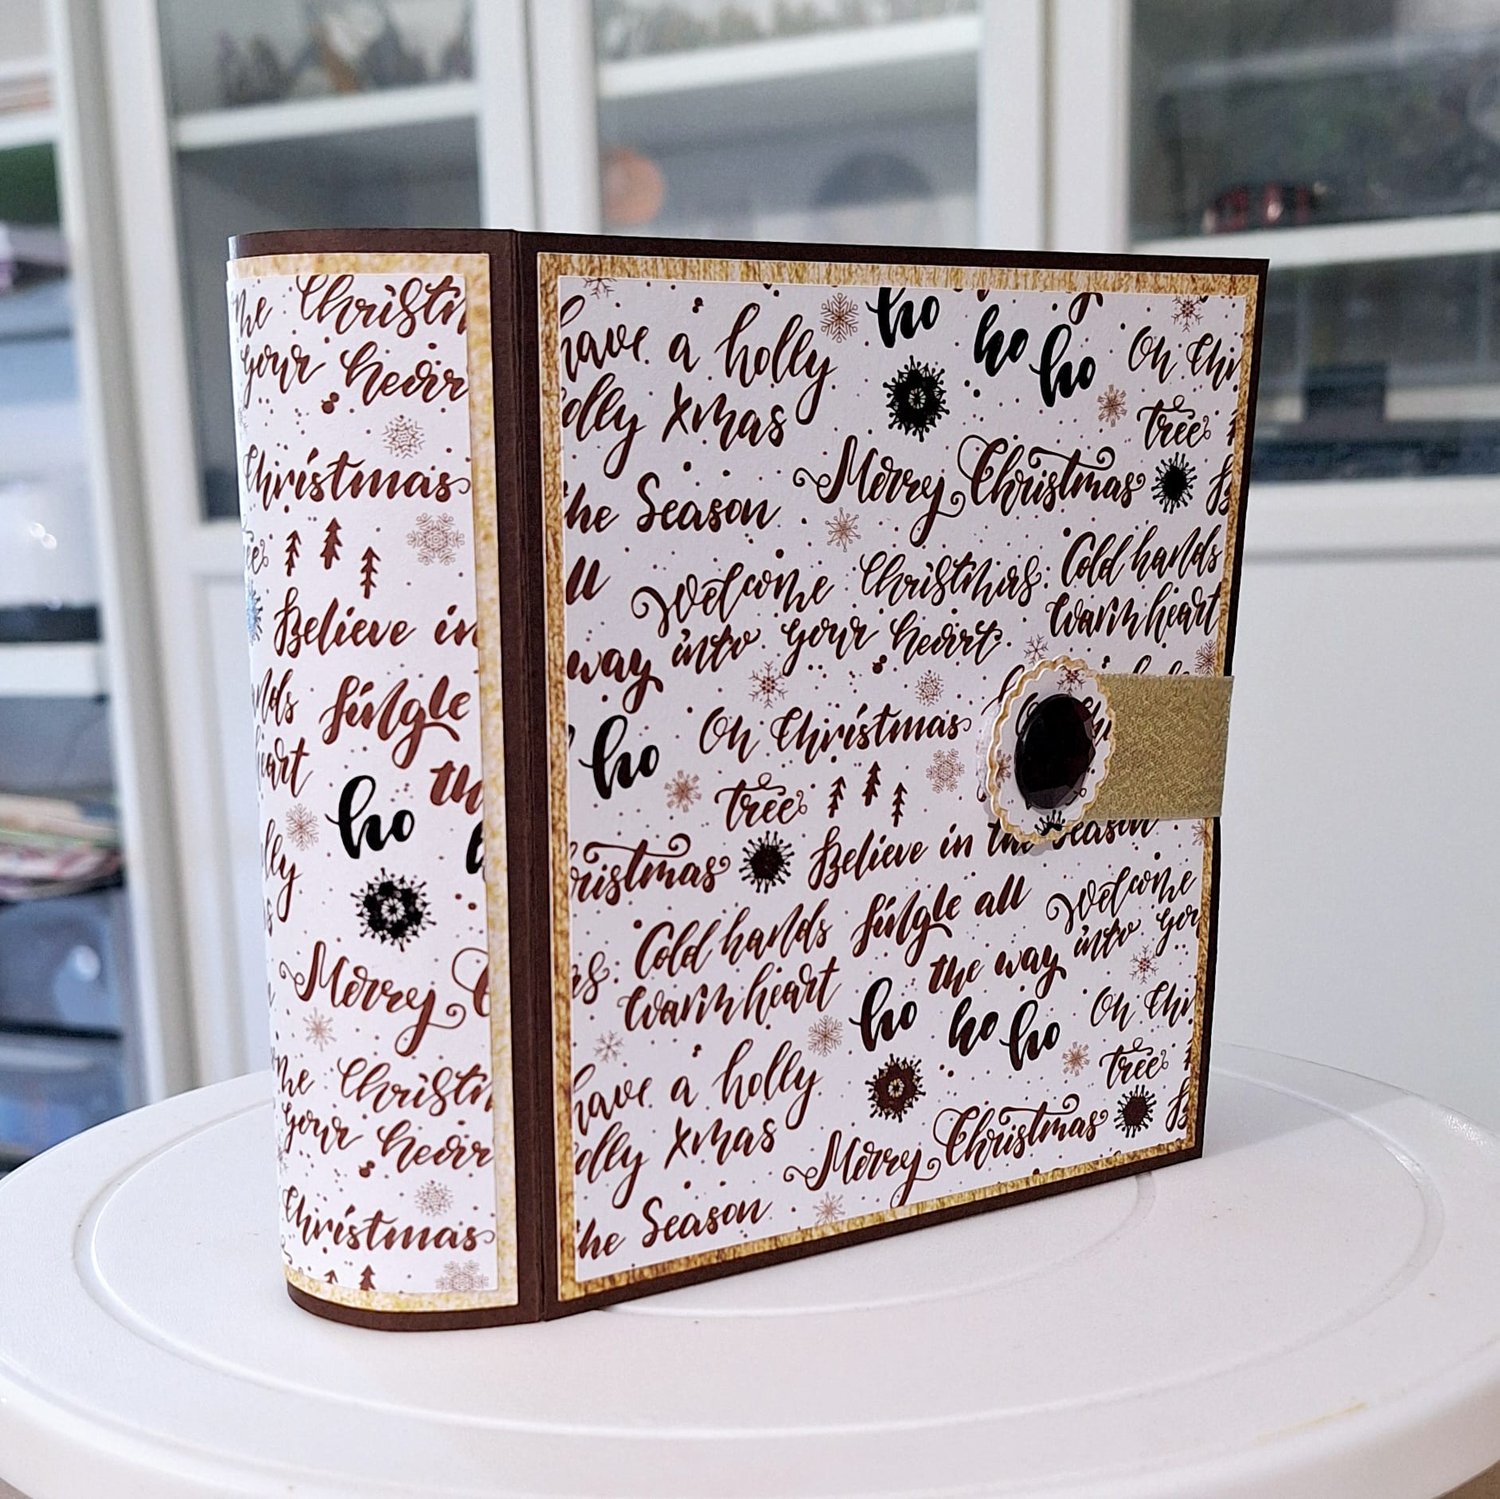 me Christm
your heart
Christmas
tree
Believe in
nds Jingle
heart
the
ho
lly
Merry C
me Christm
your heart
Christmas
have a holly
olly Xmas
ho
ho ho
Oh Chri
tree
the Season
Merry Christmas
B
all
Welcome Christmas
Cold hands
way into your heart
Warm heart
ho
Oh Christmas
tree
Christmas
Believe in the Season
Cold hands
Warm heart
Jingle all
the way
Welcome
into your
ho ho ho
Oh Chri
tree
have a holly
olly Xmas
the Season
Merry Christmas
B